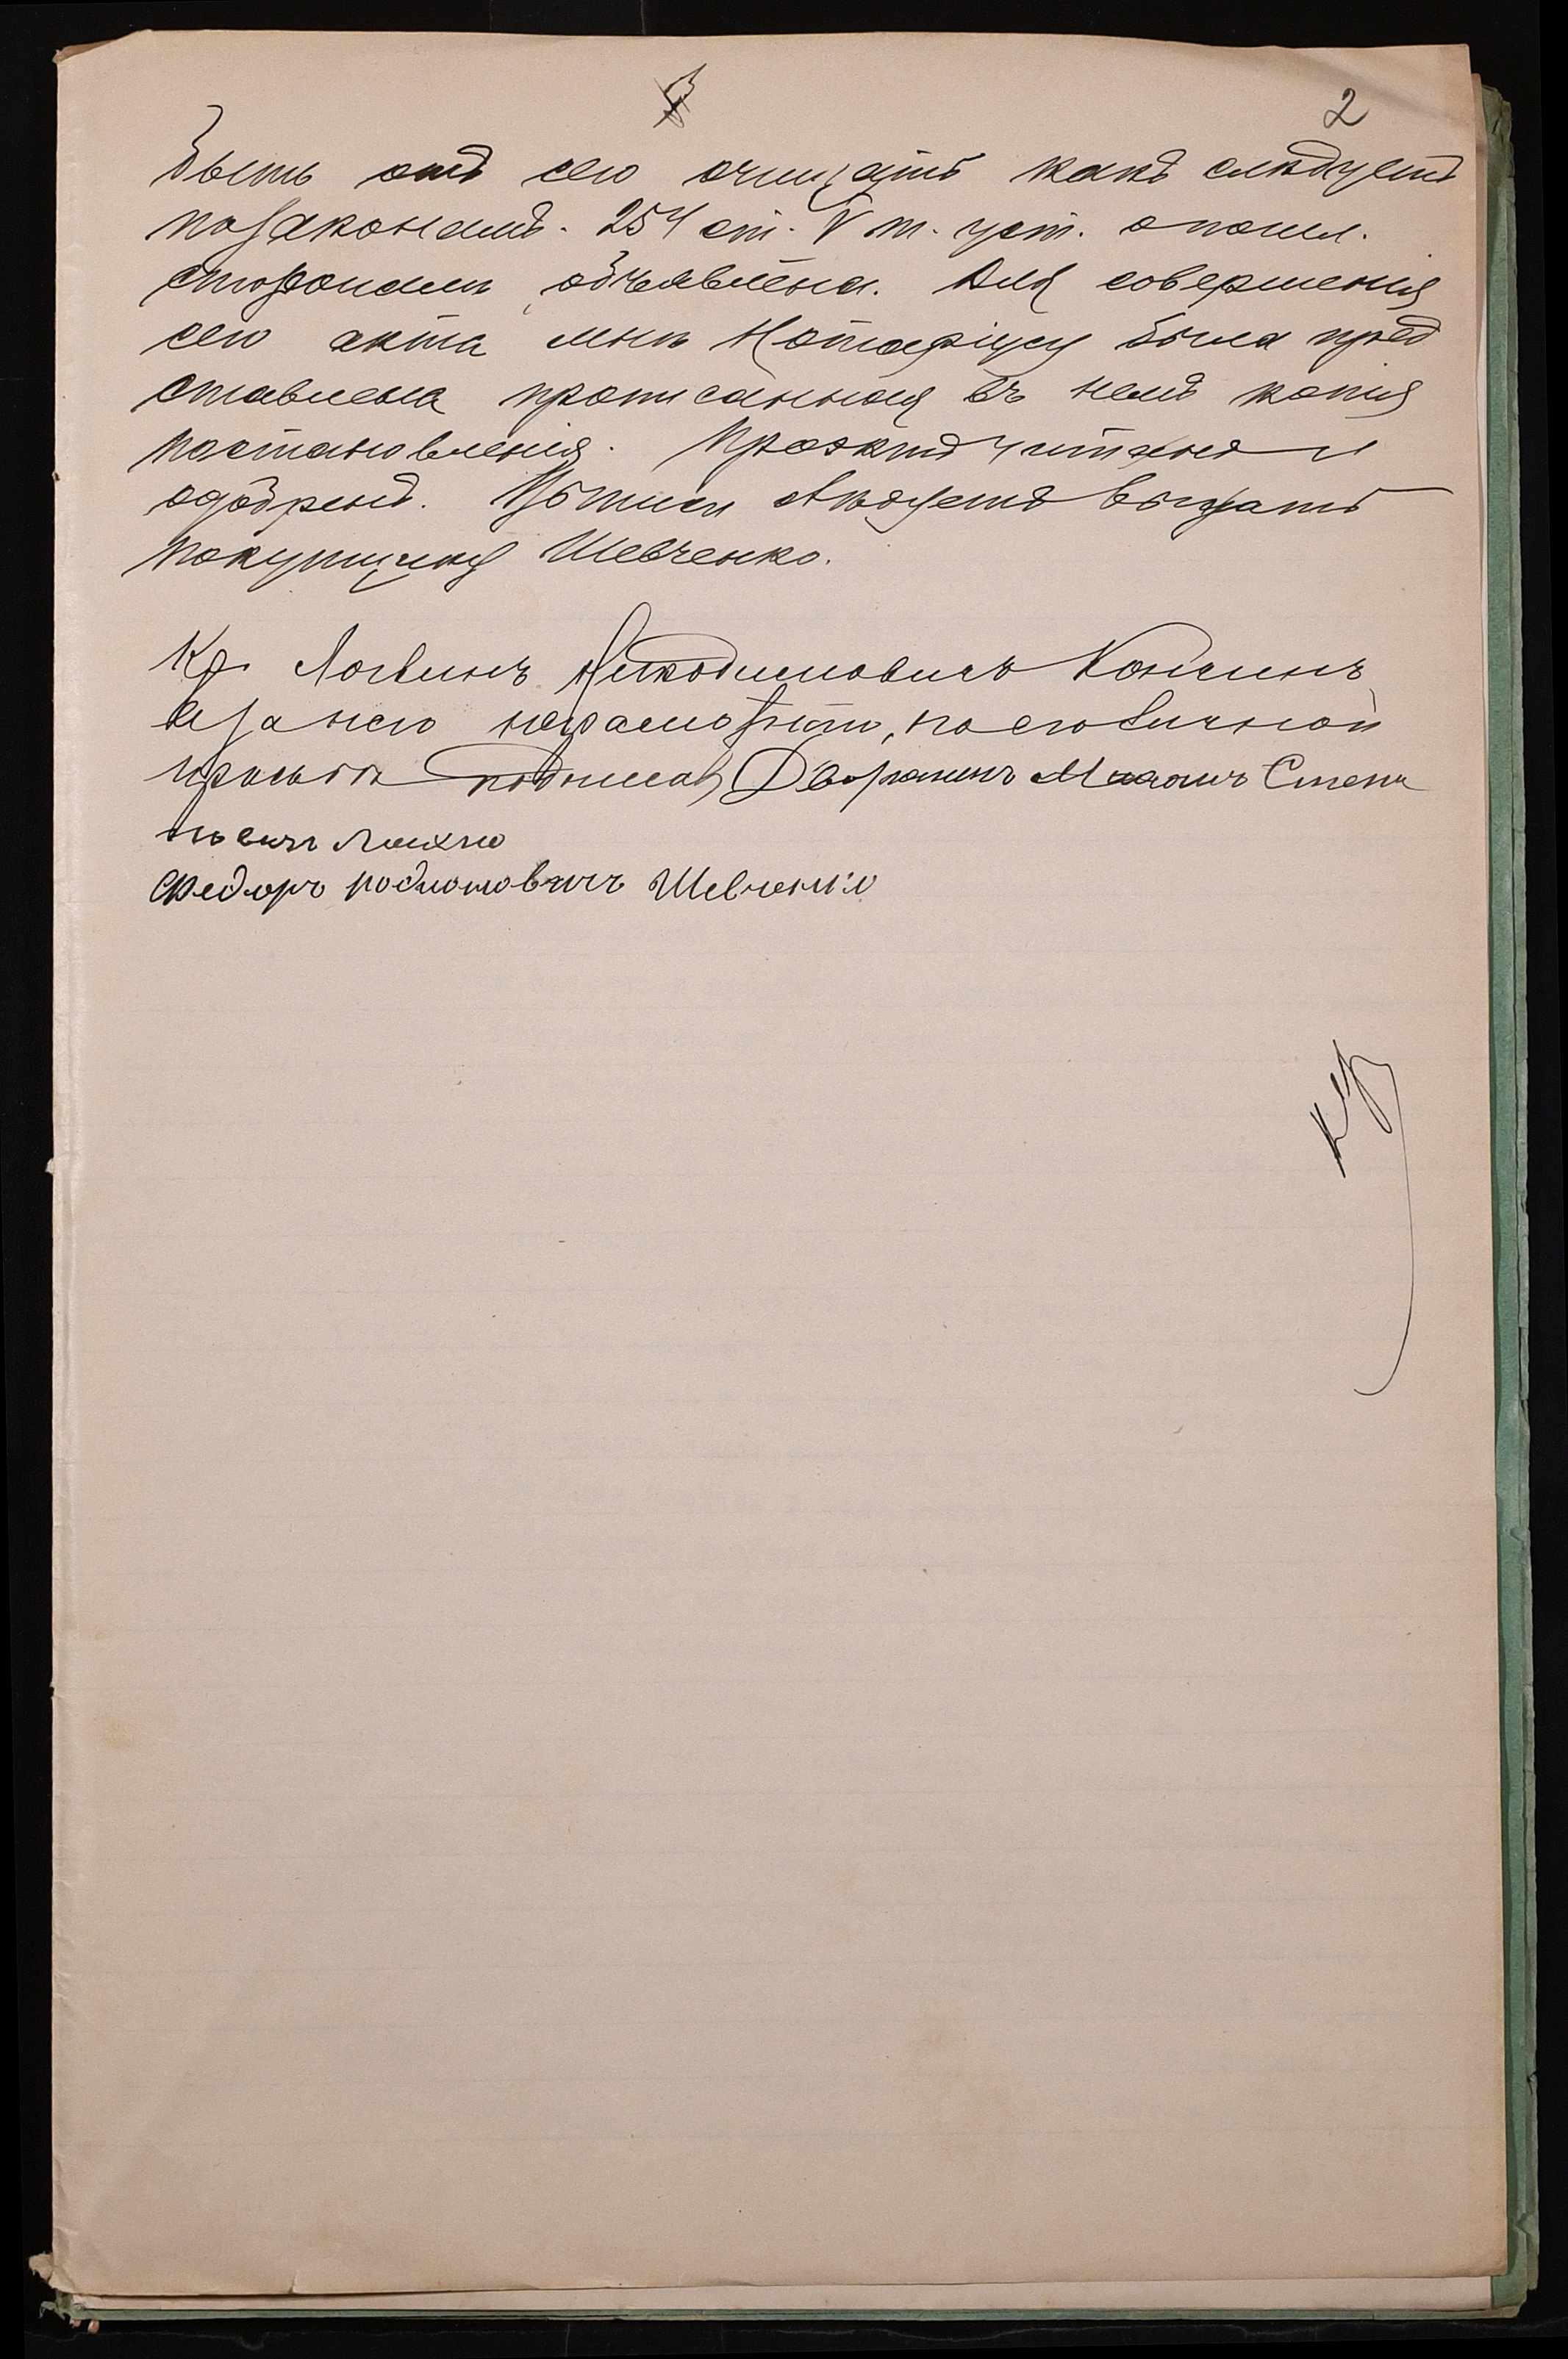 2
быть отъ сего очищать какъ слѣдуетъ
по законамъ. 254 ст. V т. уст. о пошл.
сторонамъ объявлена. Для совершенія
сего акта мнѣ Нотаріусу была пред
ставлена прописанная въ немъ копія
постановленія. Проэктъ читанъ и
одобренъ. Выписи слѣдуетъ выдать
покупщику Шевченко.
Кр. Логвинъ Никодимовичъ
а за него неграмотн, по его личной
просьбѣ подписал Дворянинъ Степа
Лихно
Федоръ Шевченко